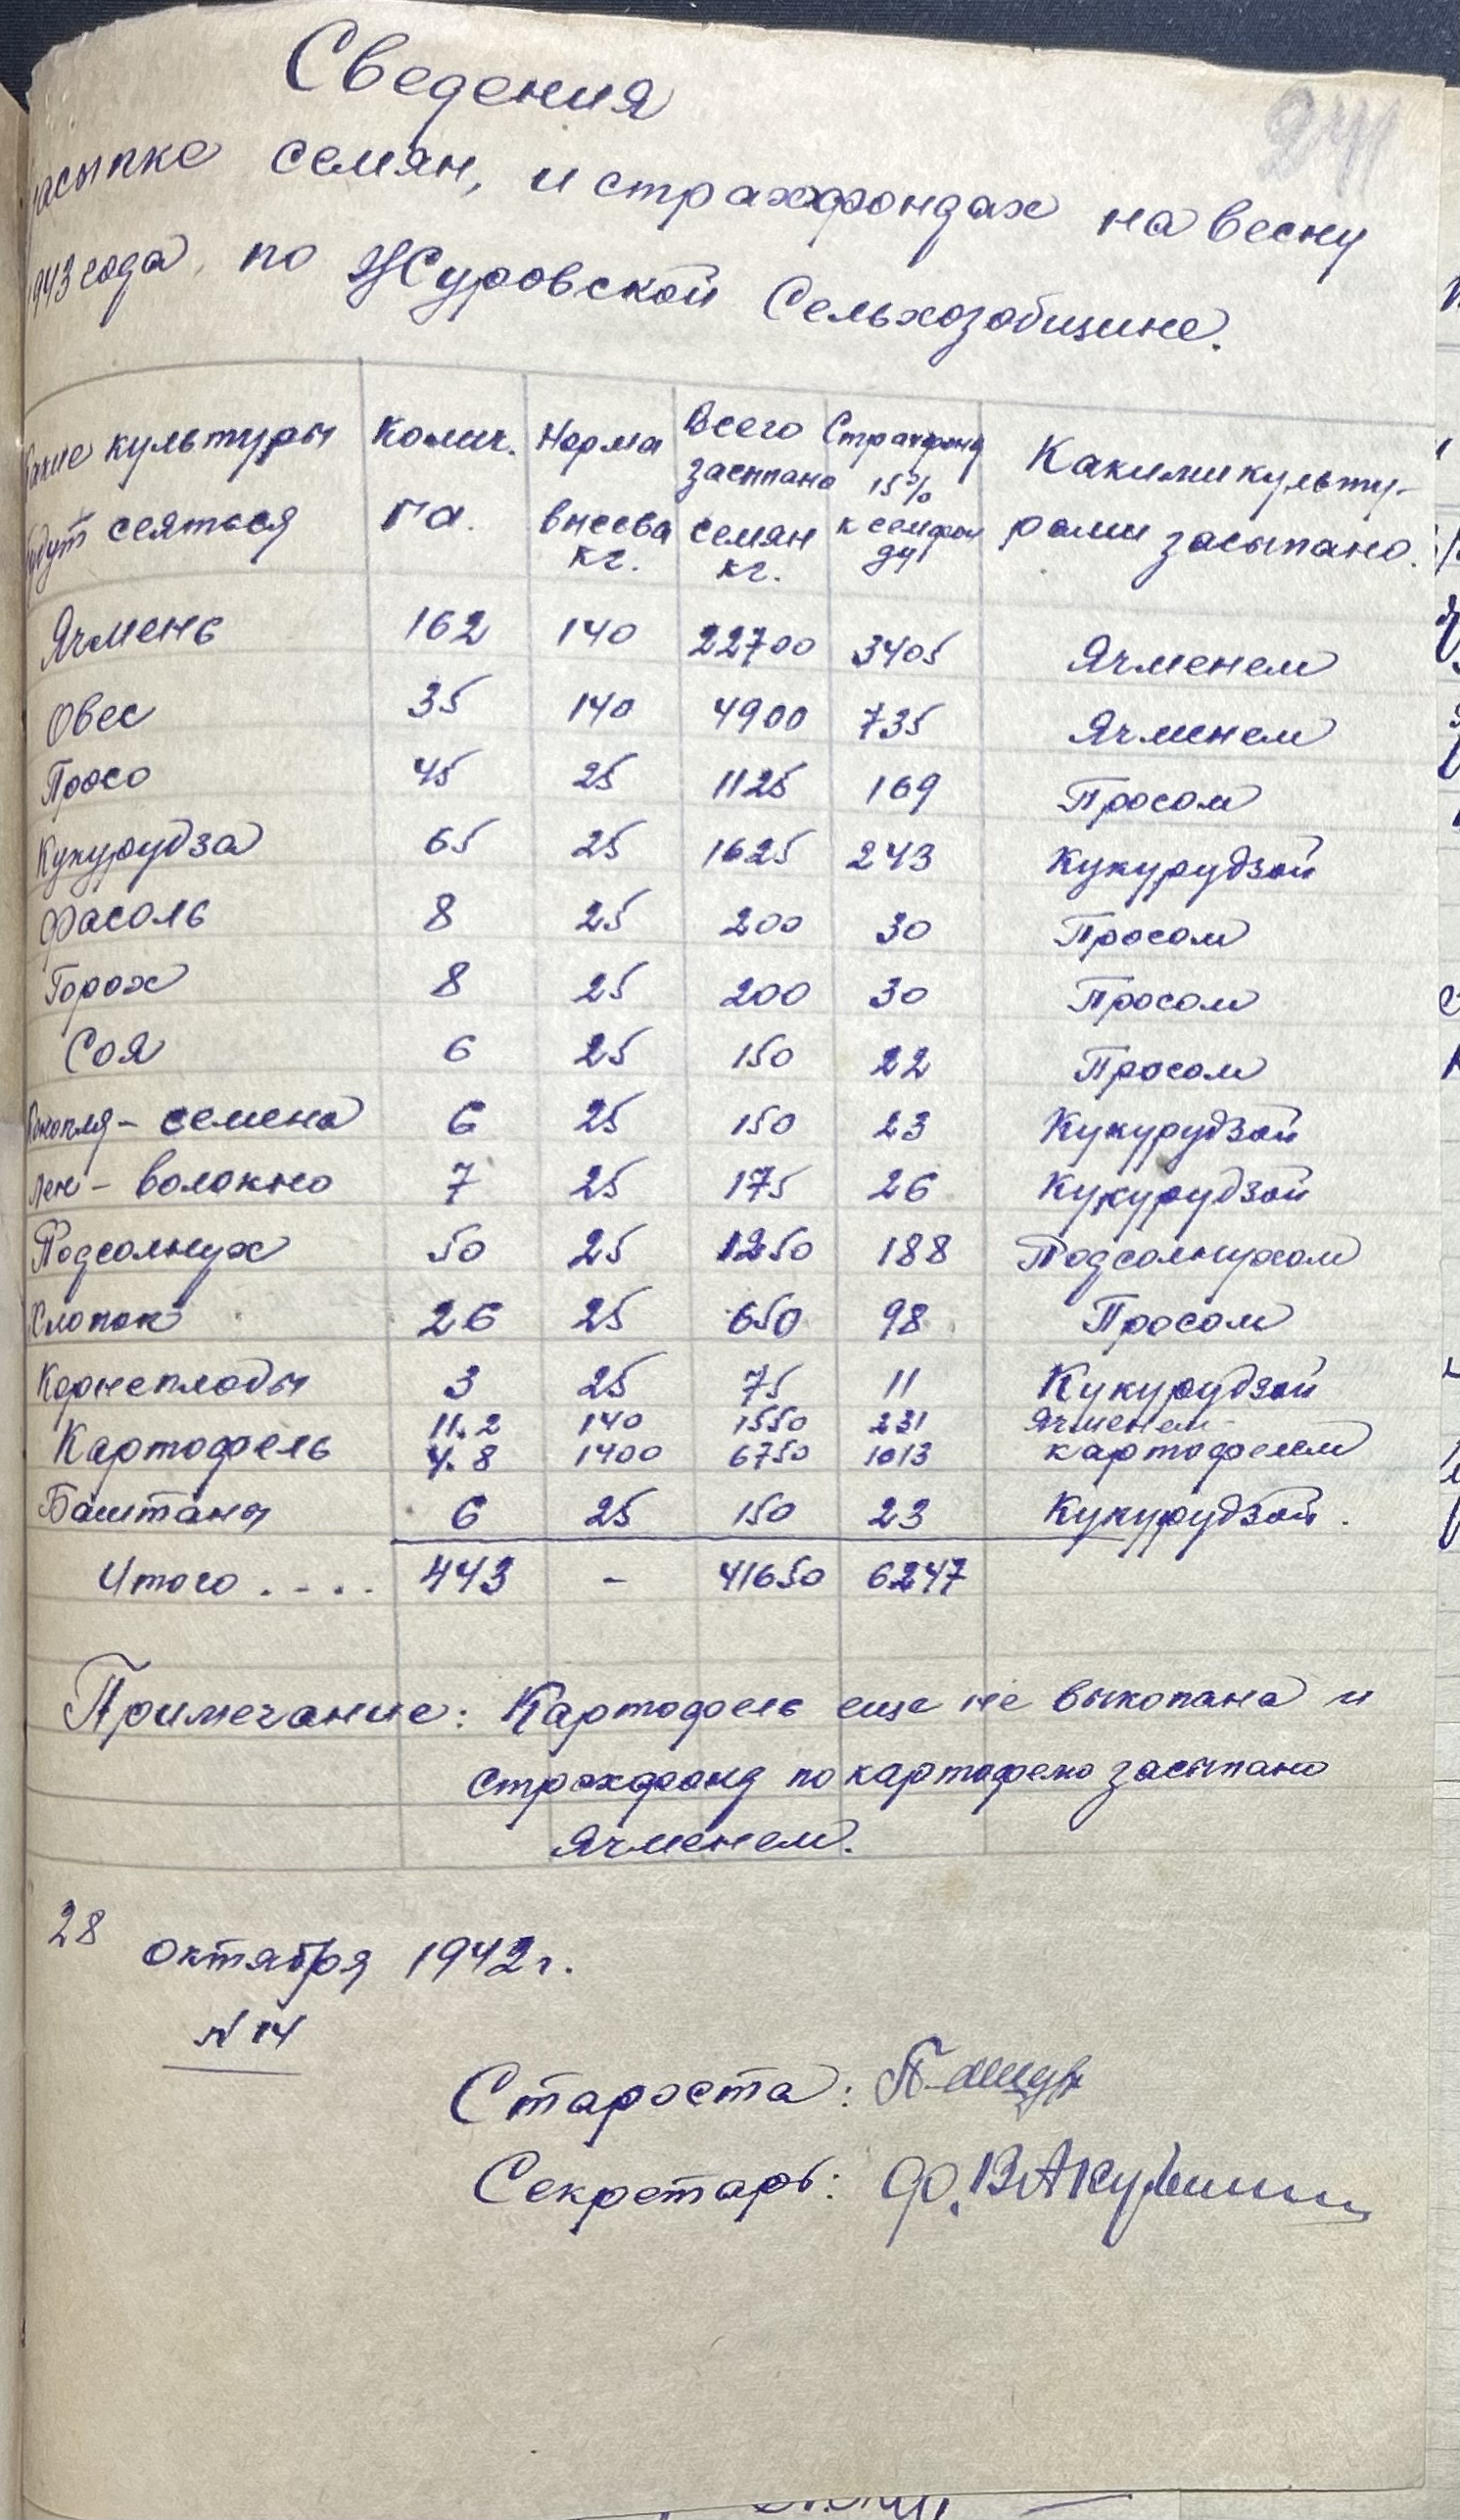 241
Сведения
засыпке семян, и страхфондах на весну
1943 года, по Журовской Сельхозобщине.
Какие культуры будут сеяться | Колич. га. | Норма высева кг. | Всего засыпано семян кг. | Страхфонд 15% к семфонду | Какими культурами засыпано.
Ячмень 162 140 22700 3405 Ячменем
Овес 35 140 4900 735 Ячменем
Просо 45 25 1125 169 Просом
Кукурудза 65 25 1625 243 Кукурудзой
Фасоль 8 25 200 30 Просом
Горох 8 25 200 30 Просом
Соя 6 25 150 22 Просом
Конопля - семена 6 25 150 23 Кукурудзой
Лен - волокно 7 25 175 26 Кукурудзой
Подсолнух 50 25 1250 188 Подсолнухом
Хлопок 26 25 650 98 Просом
Корнеплоды 3 25 75 11 Кукурудзой
11.2 140 1550 231 Ячменем
Картофель 4.8 1400 6750 1013 картофелем
Баштаны 6 25 150 23 Кукурудзой.
Итого . - . . 443 - 41650 6247
Примечание: Картофель еще не выкопана и
страхфонд по картофелю засыпано
Ячменем.
28 октября 1942 г.
N 14
Староста:
Секретарь: